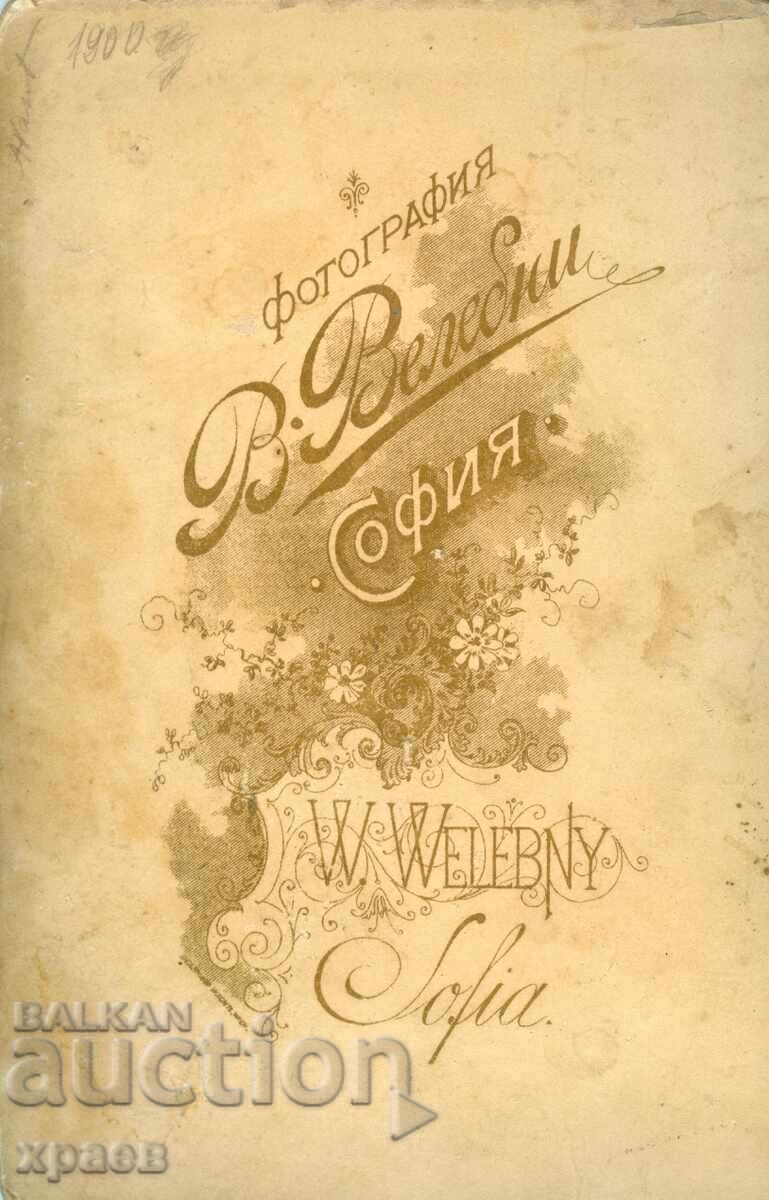 1900
фотография
В. Велебни
София
W. WELEBNY
Sofia.
BALKAN
auction
храев